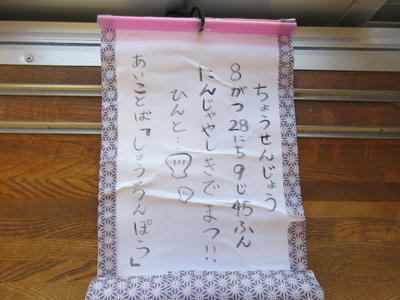 ちょうせんじょう
8がつ28にち9じ45ふん
にんじゃやしきでまつ!!
ひんと…
あいことば『しょうろんぽう』